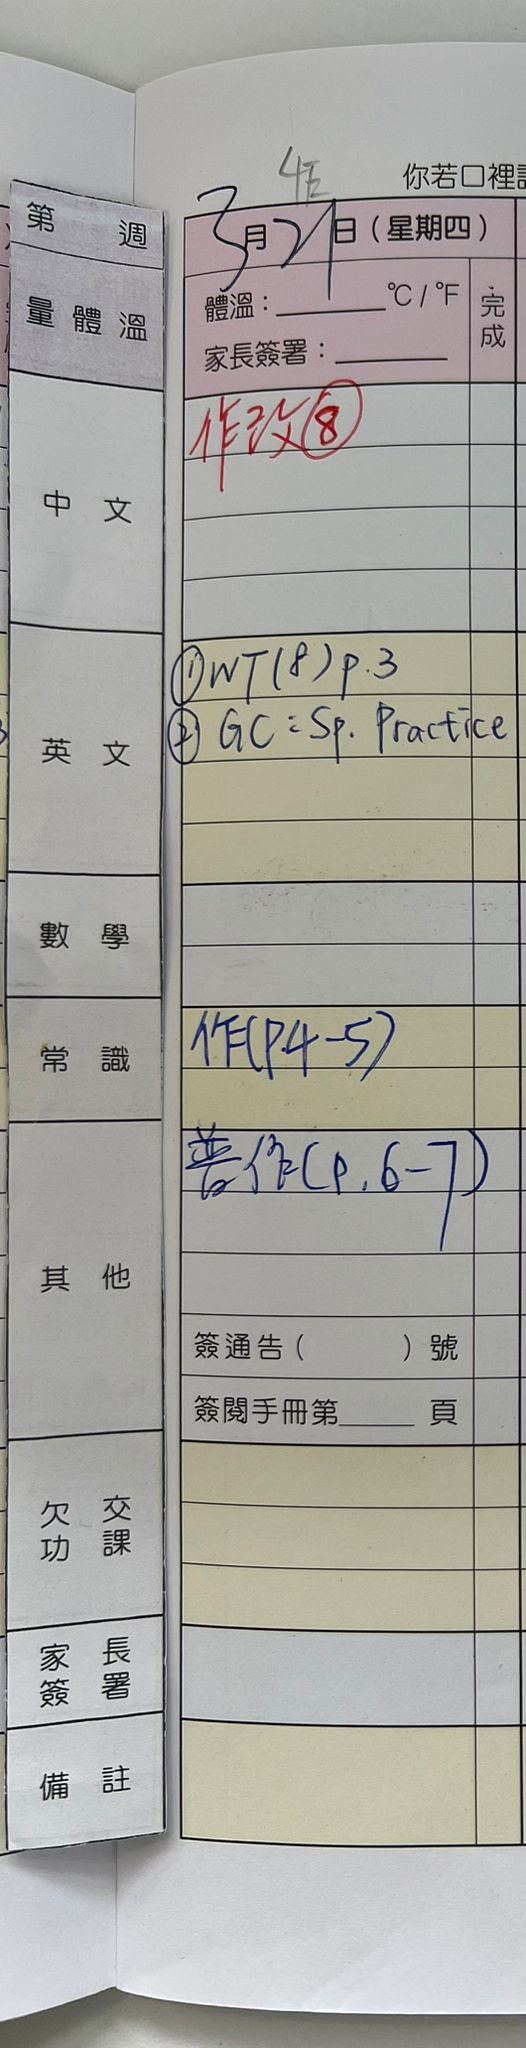 4E
你若口裡
第 週
3月21日(星期四)
量體溫
體溫:______°C/°F
完成
家長簽署:______
中文
作改⑧
英文
①WT(8)p.3
② GC:Sp. Practice
數學
常識
作(P.4-5)
其他
普作(p.6-7)
簽通告( )號
簽閱手冊第____頁
欠交
功課
家長
簽署
備註